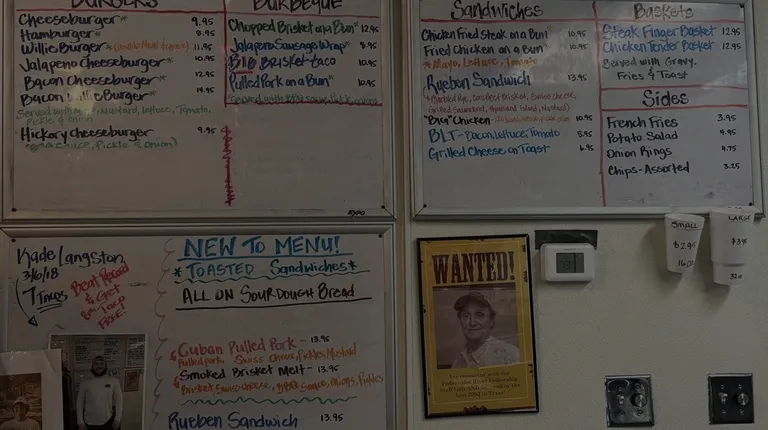 BURGERS
Cheeseburger* 9.95
Hamburger* 9.95
Willie Burger* 11.95
Jalapeno Cheeseburger* 10.95
Bacon Cheeseburger* 12.95
Bacon Willie Burger* 14.95
Pickle & Onion
Hickory Cheeseburger 9.95
BARBEQUE
Chopped Brisket on a Bun* 12.95
Jalapeno Sausage Wrap* 8.95
BIG Brisket Taco 10.95
Pulled Pork on a Bun* 10.95
EXPO
Sandwiches
Chicken Fried Steak on a Bun* 10.95
Fried Chicken on a Bun* 10.95
*Mayo, Lettuce, Tomato
Rueben Sandwich 13.95
Chicken 10.95
BLT-Bacon, Lettuce, Tomato 8.95
Grilled Cheese on Toast 6.95
Baskets
Steak Finger Basket 12.95
Chicken Tender Basket 12.95
Served with Gravy,
Fries & Toast
Sides
French Fries 3.95
Potato Salad 4.95
Onion Rings 4.75
Chips-Assorted 3.25
Kade Langston
3/6/18
7 Tacos
Beat Record
& Get
8th Taco
FREE!
NEW TO MENU!
*TOASTED Sandwiches*
ALL ON SOURDOUGH Bread
Cuban Pulled Pork - 13.95
Pulled pork, Swiss Cheese, Pickles, Mustard
Smoked Brisket Melt - 13.95
Brisket, Swiss cheese, BBQ Sauce, Onions, Pickles
Rueben Sandwich 13.95
WANTED!
SMALL
$2.95
16 oz
LARGE
32 oz